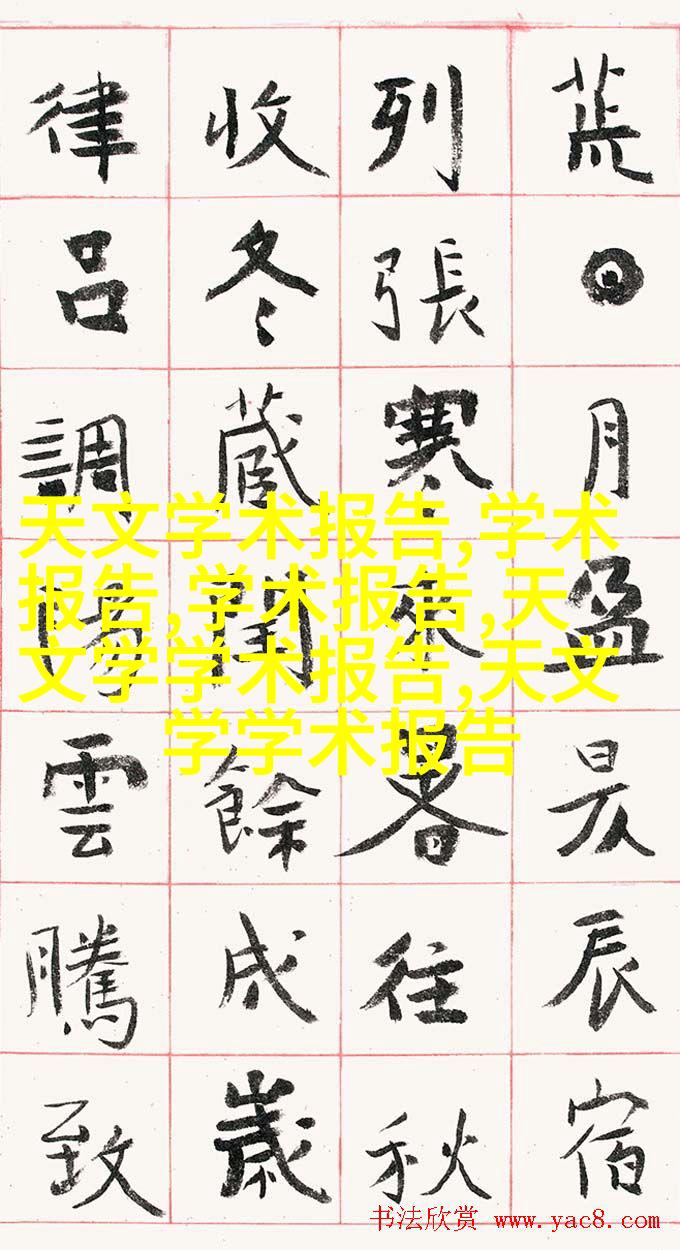 荒日月盈昃辰宿
列張寒來暑往秋
收冬藏閏餘成歲
律呂調陽雲騰致
天文学术报告,学术
报告,学术报告,天
文学学术报告,天文
学学术报告
书法欣赏 www.yac8.com